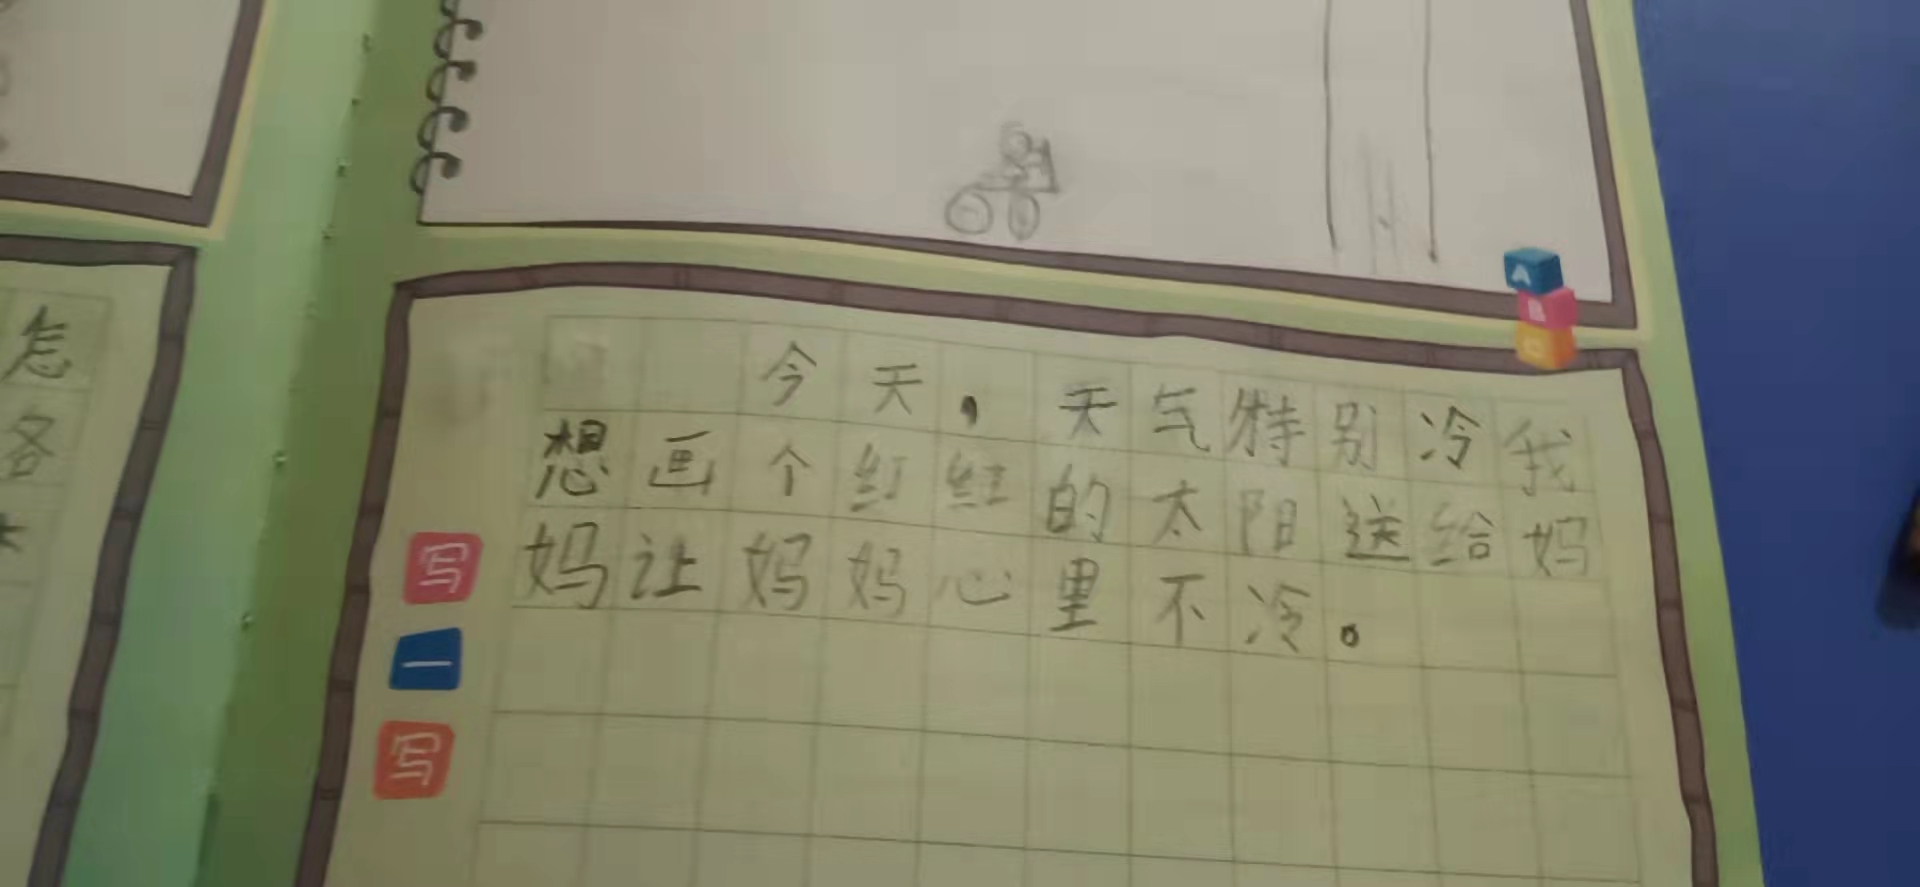 怎
各
A
B
C
今天，天气特别冷我
想画个红红的太阳送给妈
妈让妈妈心里不冷。
写
一
写